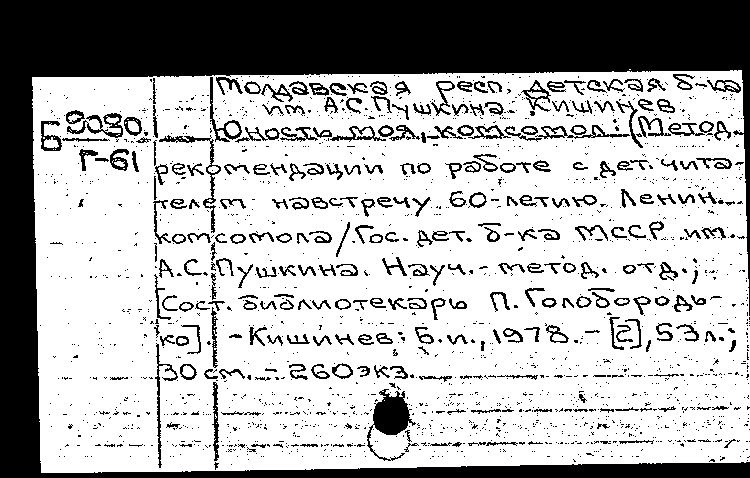 Молдавская респ. детская б-ка
им. А.С. Пушкина. Кишинев.
Б 9090.
Г-61
Юность моя, комсомол: (Метод.
рекомендации по работе с дет. чита-
телем навстречу 60-летию Ленин.
комсомола/Гос. дет. б-ка МССР им.
А.С. Пушкина. Науч.-метод. отд.;
[Сост. библиотекарь П. Голобородь-
ко]. - Кишинев: Б.и., 1978. - [2], 53 л.;
30 см. - 260 экз.